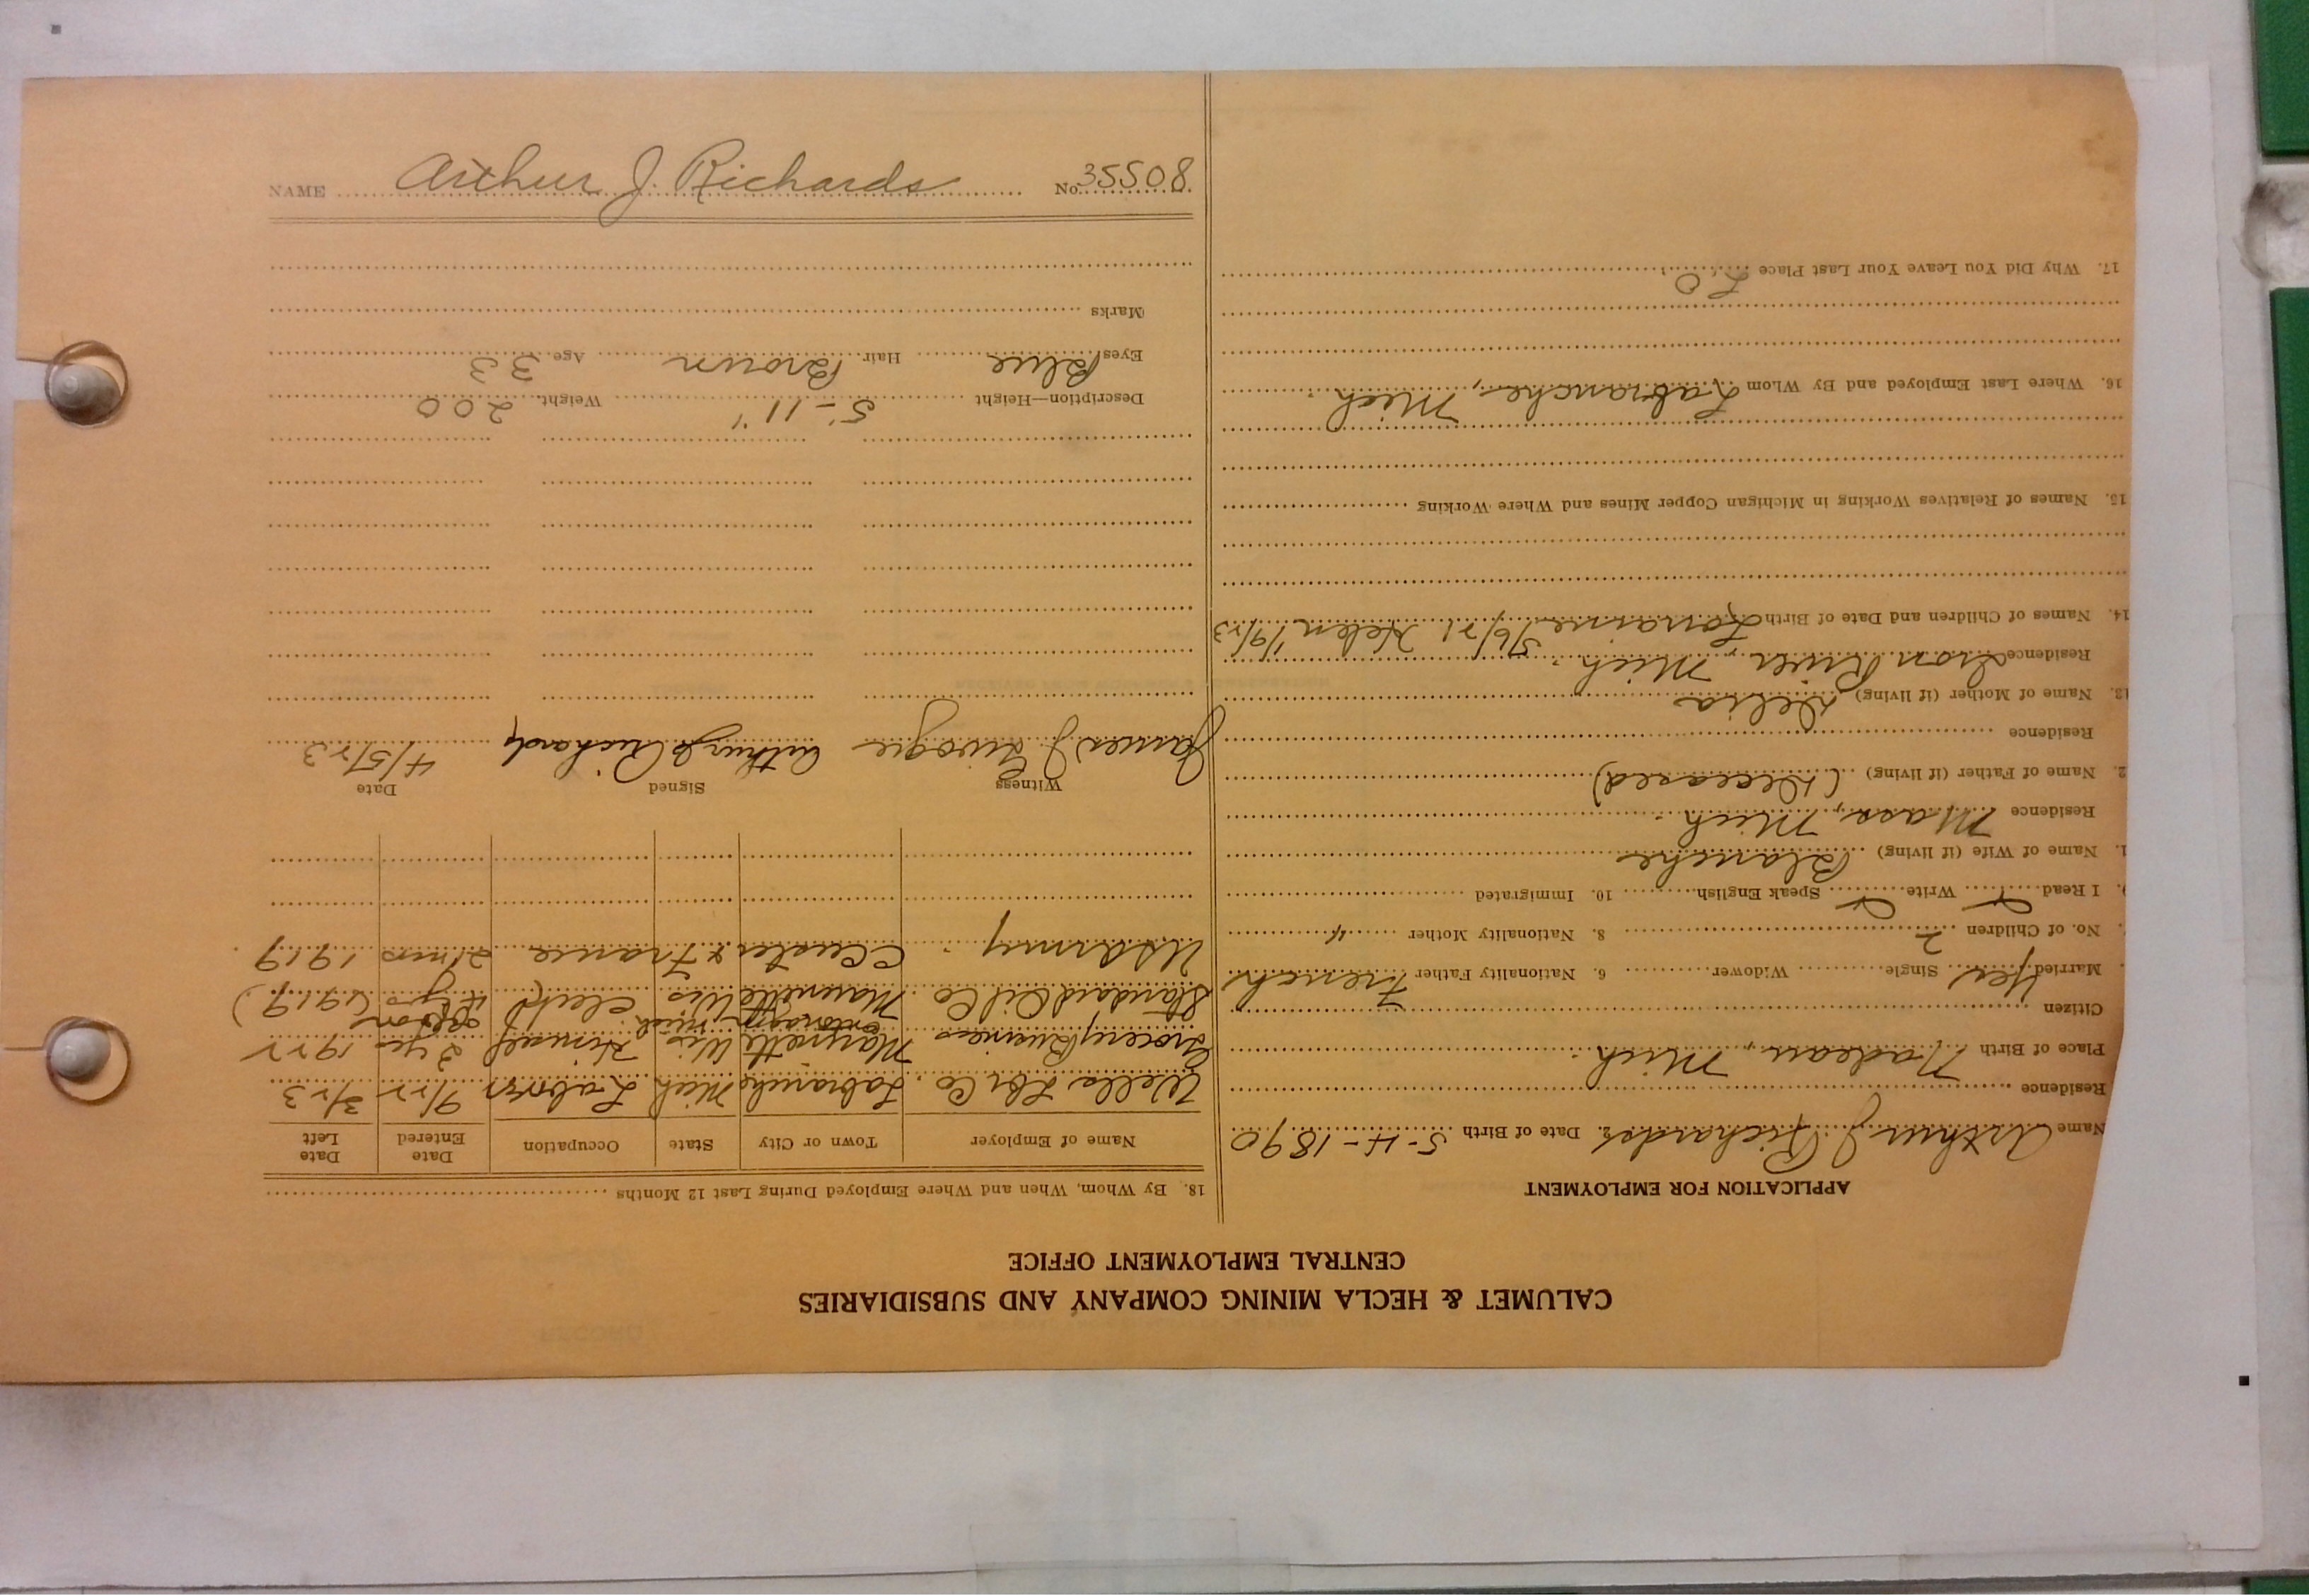 CALUMET & HECLA MINING COMPANY AND SUBSIDIARIES
CENTRAL EMPLOYMENT OFFICE
APPLICATION FOR EMPLOYMENT
Name Arthur J Richards 2. Date of Birth 5-4-1890
Residence
Place of Birth Nadeau, Mich.
Citizen
Married Yes Single Widower 6. Nationality Father French
No. of Children 2 8. Nationality Mother "
I Read Write Speak English 10. Immigrated
1. Name of Wife (if living) Blanche
Residence Mass, Mich.
2. Name of Father (if living) (Deceased)
Residence
13. Name of Mother (if living) Delia
Residence Iron River, Mich.
14. Names of Children and Date of Birth Lorraine 5/6/21 Helen 1/9/23
15. Names of Relatives Working in Michigan Copper Mines and Where Working
16. Where Last Employed and By Whom Labranche, Mich.
17. Why Did You Leave Your Last Place LO
18. By Whom, When and Where Employed During Last 12 Months
Name of Employer Town or City State Occupation Date Entered Date Left
Wells Lbr Co. Labranche Mich Labor 9/22 3/23
Grocery Business Marinette Wis Himself 2 yrs 1922
Ontonagon Mich
Standard Oil Co Marinette Wis Clerk 4 yrs (1917)
US Army Custer & France 21 mos 1919
Witness Signed Date
James J. Arthur J Richards 4/5/23
Description—Height 5'-11" Weight 200
Eyes Blue Hair Brown Age 33
Marks
NAME Arthur J. Richards No. 35508